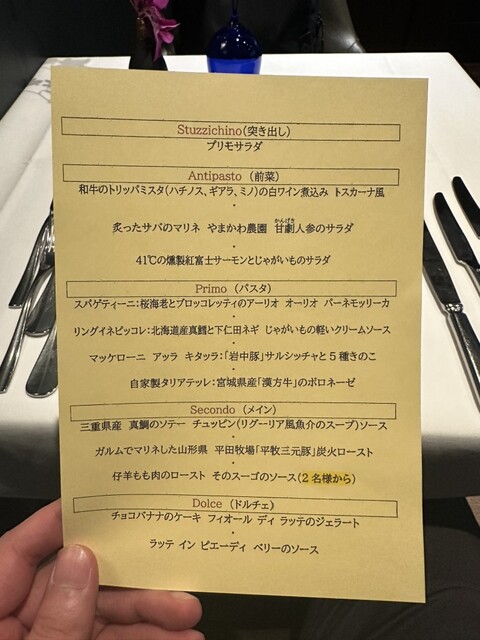 Stuzzichino(突き出し)
プリモサラダ
Antipasto (前菜)
和牛のトリッパミスタ(ハチノス、ギアラ、ミノ)の白ワイン煮込み トスカーナ風
・
かんげき
炙ったサバのマリネ やまかわ農園 甘劇人参のサラダ
・
41℃の燻製紅富士サーモンとじゃがいものサラダ
Primo (パスタ)
スパゲティーニ:桜海老とブロッコレッティのアーリオ オーリオ パーネモッリーカ
・
リングイネピッコレ:北海道産真鱈と下仁田ネギ じゃがいもの軽いクリームソース
・
マッケローニ アッラ キタッラ:「岩中豚」サルシッチャと5種きのこ
・
自家製タリアテッレ:宮城県産「漢方牛」のボロネーゼ
Secondo (メイン)
三重県産 真鯛のソテー チュッピン(リグーリア風魚介のスープ)ソース
・
ガルムでマリネした山形県 平田牧場「平牧三元豚」炭火ロースト
・
仔羊もも肉のロースト そのスーゴのソース(2名様から)
Dolce (ドルチェ)
チョコバナナのケーキ フィオール ディ ラッテのジェラート
・
ラッテ イン ピエーディ ベリーのソース